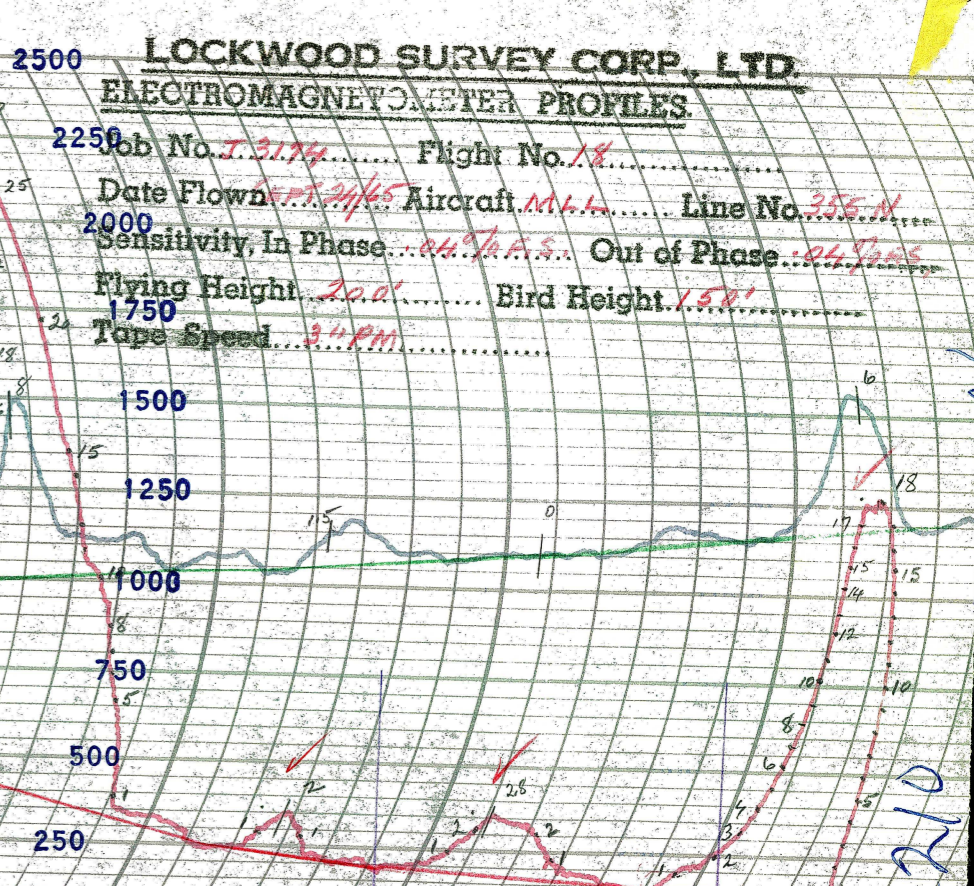 2500
LOCKWOOD SURVEY CORP., LTD.
ELECTROMAGNETOMETER PROFILES.
2250
Job No. J 3174 Flight No. 18
25
Date Flown SEPT 24/65 Aircraft MLL Line No. 355 N
2000
Sensitivity, In Phase .04%F.S. Out of Phase .04%FS
Flying Height 200' Bird Height 150'
1750
20
Tape Speed 3"PM
18
8
6
1500
15
1250
18
1.5
0
17
10
1000
15
15
14
8
12
750
10
10
5
8
500
6
2
28
1
4
5
210
1
1
2
2
3
250
1
1
2
1